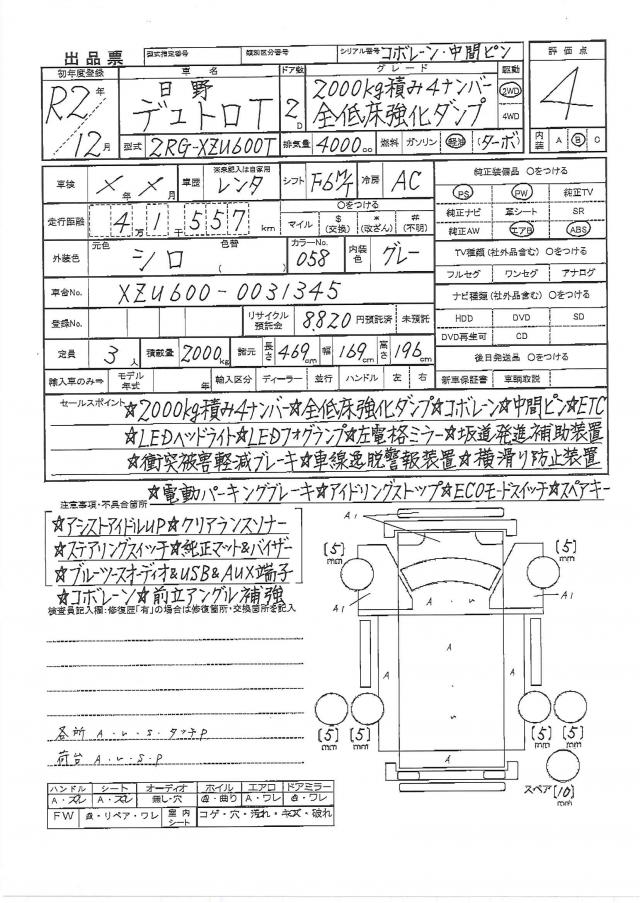 出品票 型式指定番号 類別区分番号 シリアル番号 コボレーン・中間ピン
初年度登録 車名 ドア数 グレード 駆動 評価点
R2年 日野 2D 2000kg積み4ナンバー 2WD 4
12月 デュトロT 全低床強化ダンプ 4WD
型式 2RG-XZU600T 排気量 4000cc 燃料 ガソリン 軽油 (ターボ) 内装 A B C
車検 ×年×月 車歴 レンタ シフト F6M/T 冷房 AC 純正装備品 ○をつける
※未記入は自家用
PS PW 純正TV
走行距離 4万1千557km ○をつける マイル $(交換) *(改ざん) #(不明)
純正ナビ 革シート SR
純正AW エアB ABS
外装色 元色 シロ 色替 ( ) カラーNo. 058 内装色 グレー
TV種類(社外品含む) ○をつける
フルセグ ワンセグ アナログ
車台No. XZU600-0031345
ナビ種類(社外品含む) ○をつける
登録No. リサイクル預託金 8,820円預託済 未預託
HDD DVD SD
DVD再生可 CD
定員 3人 積載量 2000kg 諸元 長さ 469cm 幅 169cm 高さ 196cm
後日発送品 ○をつける
輸入車のみ⇒ モデル年式 年 輸入区分 ディーラー ・ 並行 ハンドル 左 ・ 右 新車保証書 車輌取説
セールスポイント ☆2000kg積み4ナンバー☆全低床強化ダンプ☆コボレーン☆中間ピン☆ETC
☆LEDヘッドライト☆LEDフォグランプ☆左電格ミラー☆坂道発進補助装置
☆衝突被害軽減ブレーキ☆車線逸脱警報装置☆横滑り防止装置
☆電動パーキングブレーキ☆アイドリングストップ☆ECOモードスイッチ☆スペアキー
注意事項・不具合箇所
☆アシストアイドルUP☆クリアランスソナー
☆ステアリングスイッチ☆純正マット&バイザー
☆ブルーツースオーディオ&USB&AUX端子
☆コボレーン☆前立アングル補強
検査員記入欄:修復歴「有」の場合は修復箇所・交換箇所を記入
A1
[5]mm [5]mm
A1 A1
A・u
A A A
u
各所 A・u・S・タッチP
荷台 A・u・S・P
[5]mm [5]mm [5]mm [5]mm
スペア [10]mm
ハンドル シート オーディオ ホイル エアロ ドアミラー
A・スレ A・スレ 無し・穴 曲り A・ワレ ワレ
FW リペア・ワレ 室内シート コゲ・穴・汚れ・キズ・破れ